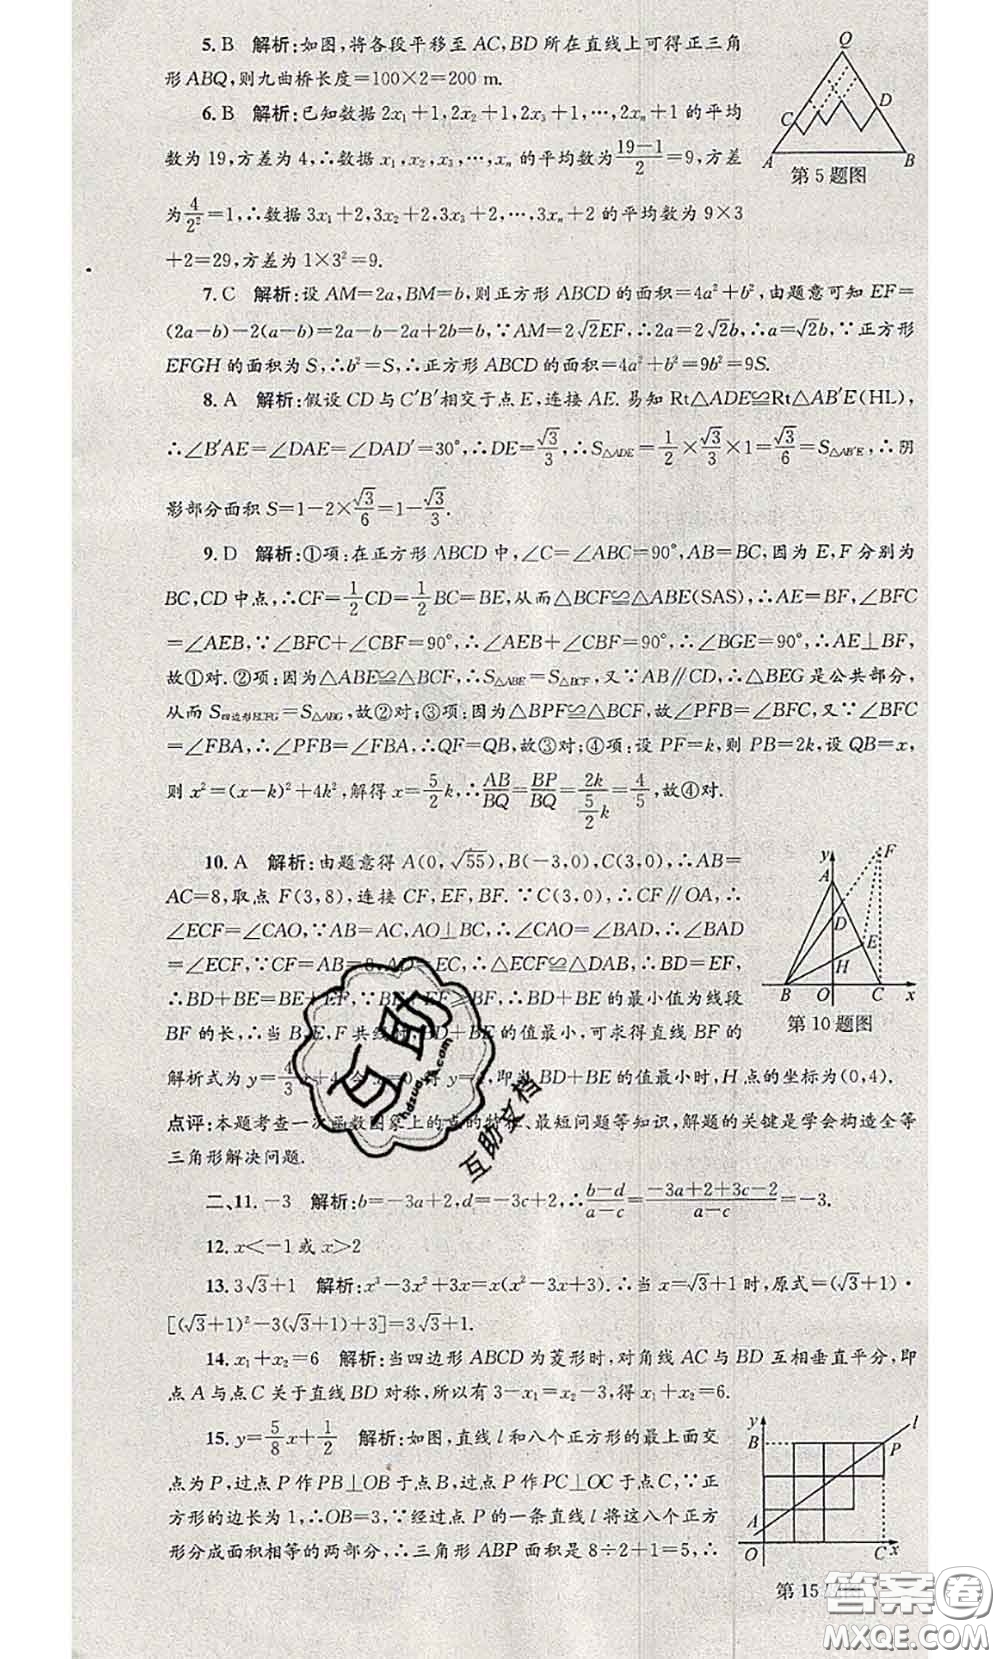 5. B 解析:如图,将各段平移至 AC,BD 所在直线上可得正三角
形 ABQ,则九曲桥长度=100×2=200 m.
6. B 解析:已知数据 2x₁+1,2x₂+1,2x₃+1,…,2xₙ+1 的平均
数为 19,方差为 4,∴数据 x₁,x₂,x₃,…,xₙ 的平均数为(19-1)/2=9,方差
为4/2²=1,∴数据 3x₁+2,3x₂+2,3x₃+2,…,3xₙ+2 的平均数为 9×3
+2=29,方差为 1×3²=9.
Q
C
D
A
B
第 5 题图
7. C 解析:设 AM=2a,BM=b,则正方形 ABCD 的面积=4a²+b²,由题意可知 EF=
(2a-b)-2(a-b)=2a-b-2a+2b=b,∵AM=2√2EF,∴2a=2√2b,∴a=√2b,∵正方形
EFGH 的面积为 S,∴b²=S,∴正方形 ABCD 的面积=4a²+b²=9b²=9S.
8. A 解析:假设 CD 与 C′B′相交于点 E,连接 AE. 易知 Rt△ADE≌Rt△AB′E(HL),
∴∠B′AE=∠DAE=∠DAD′=30°,∴DE=√3/3,∴S△ADE=1/2×√3/3×1=√3/6=S△AB′E,∴阴
影部分面积 S=1-2×√3/6=1-√3/3.
9. D 解析:①项:在正方形 ABCD 中,∠C=∠ABC=90°,AB=BC,因为 E,F 分别为
BC,CD 中点,∴CF=1/2CD=1/2BC=BE,从而△BCF≌△ABE(SAS),∴AE=BF,∠BFC
=∠AEB,∵∠BFC+∠CBF=90°,∴∠AEB+∠CBF=90°,∴∠BGE=90°,∴AE⊥BF,
故①对. ②项:因为△ABE≌△BCF,∴S△ABE=S△BCF,又∵AB∥CD,∴△BEG 是公共部分,
从而 S四边形ECFG=S△ABG,故②对;③项:因为△BPF≌△BCF,故∠PFB=∠BFC,又∵∠BFC
=∠FBA,∴∠PFB=∠FBA,∴QF=QB,故③对;④项:设 PF=k,则 PB=2k,设 QB=x,
则 x²=(x-k)²+4k²,解得 x=5/2k,∴AB/BQ=BP/BQ=2k/(5/2k)=4/5,故④对.
10. A 解析:由题意得 A(0,√55),B(-3,0),C(3,0),∴AB=
AC=8,取点 F(3,8),连接 CF,EF,BF. ∵C(3,0),∴CF∥OA,∴
∠ECF=∠CAO,∵AB=AC,AO⊥BC,∴∠CAO=∠BAD,∴∠BAD
=∠ECF,∵CF=AB=8,AD=EC,∴△ECF≌△DAB,∴BD=EF,
∴BD+BE=BE+EF,∵BE+EF≥BF,∴BD+BE 的最小值为线段
BF 的长,∴当 B,E,F 共线时,BD+BE 的值最小,可求得直线 BF 的
解析式为 y=4/3x+4,令 x=0,得 y=4,即当 BD+BE 的值最小时,H 点的坐标为(0,4).
点评:本题考查一次函数图象上的点的特征、最短问题等知识,解题的关键是学会构造全等
三角形解决问题.
y
F
A
D
E
H
B
O
C
x
第 10 题图
二、11. -3 解析:b=-3a+2,d=-3c+2,∴(b-d)/(a-c)=(-3a+2+3c-2)/(a-c)=-3.
12. x<-1 或 x>2
13. 3√3+1 解析:x³-3x²+3x=x(x²-3x+3).∴当 x=√3+1 时,原式=(√3+1)·
[(√3+1)²-3(√3+1)+3]=3√3+1.
14. x₁+x₂=6 解析:当四边形 ABCD 为菱形时,对角线 AC 与 BD 互相垂直平分,即
点 A 与点 C 关于直线 BD 对称,所以有 3-x₁=x₂-3,得 x₁+x₂=6.
15. y=5/8x+1/2 解析:如图,直线 l 和八个正方形的最上面交
点为 P,过点 P 作 PB⊥OB 于点 B,过点 P 作 PC⊥OC 于点 C,∵正
方形的边长为 1,∴OB=3,∵经过点 P 的一条直线 l 将这八个正方
形分成面积相等的两部分,∴三角形 ABP 面积是 8÷2+1=5,∴
y
l
B
P
A
O
C
x
第 15
互助
hdzuoye.com
互助文档
答案卷
MXQE.COM